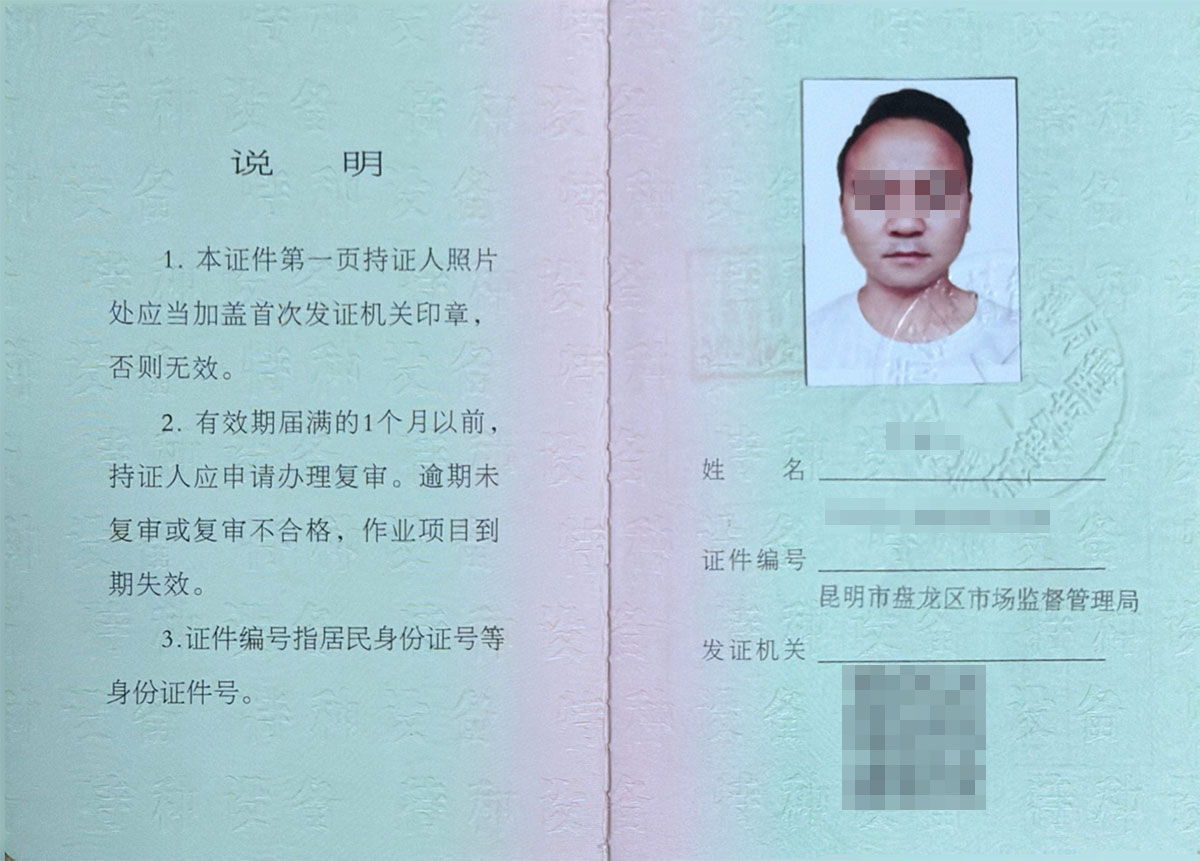 说 明
1. 本证件第一页持证人照片
处应当加盖首次发证机关印章，
否则无效。
2. 有效期届满的1个月以前，
持证人应申请办理复审。逾期未
复审或复审不合格，作业项目到
期失效。
3.证件编号指居民身份证号等
身份证件号。
姓 名
证件编号
昆明市盘龙区市场监督管理局
发证机关